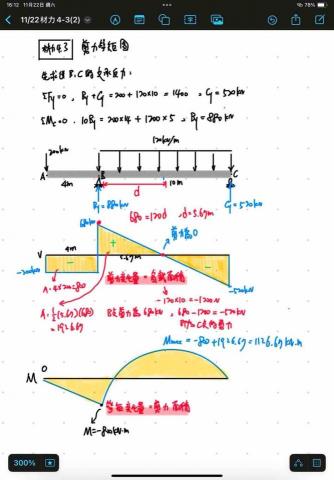 16:12 11月22日 週六
78%
11/22材力4-3(2)
材力4.3 剪力彎矩圖
先求出B.C的支承反力:
ΣFy=0, By+Cy=200+120×10=1400, Cy=520kN
ΣMc=0, 10By=200×14+1200×5, By=880kN
120kN/m
200kN
A B C
4m d 10m
By=880kN Cy=520kN
680=120d, d=5.67m
680kN
剪力為0
V 4m + 5.67m
-200kN - - -520kN
A=4×200=800
剪力變化量=負載面積
-120×10=-1200N
A=½(5.67)(680)
=1926.67
B支剪力為680kN, 680-1200=-520kN
即為C支的剪力
Mmax=-800+1926.67=1126.67kN.m
M 0
彎矩變化量=剪力面積
M=-800kN.m
300%